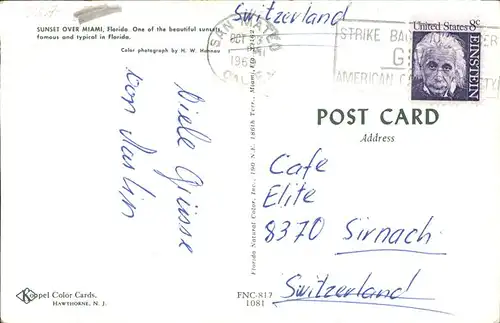 USA
Switzerland
SUNSET OVER MIAMI, Florida. One of the beautiful sunsets,
famous and typical in Florida.
Color photograph by H. W. Hannau
Viele Grüsse
von Martin
SAN MATEO
OCT
196
CALIF
STRIKE BACK
AMERICAN
United States 8c
EINSTEIN
POST CARD
Address
Cafe
Elite
8370 Sirnach
Switzerland
Florida Natural Color, Inc., 190 N.E. 186th Terr., Miami,
Koppel Color Cards,
HAWTHORNE, N. J.
FNC-817
1081